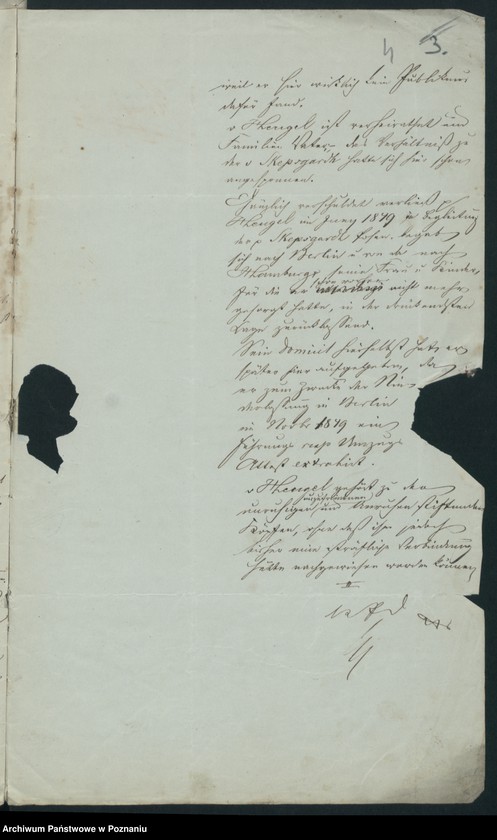 4 3.
weil er hier wirklich kein Publikum
dafür fand.
v Hengel ist verheirathet und
Familien Vater, das Verhältniß zu
der v Skopsgardt hatte sich hier schon
angesponnen.
Gänzlich verschuldet verließ p
Hengel im Juny 1849 in Begleitung
der p Skopsgardt Posen, begab
sich nach Berlin u von da nach
Hamburg, seine Frau u Kinder,
für die er nicht mehr
gesorgt hatte, in der drückendsten
Lage zurücklassend.
Sein Domicil hierselbst hat er
später hier aufgegeben, da
er zum Zwecke der Nie-
derlassung in Berlin
im Novbr 1849 ein
Führungs resp Umzugs
Attest extrahirt.
v Hengel gehört zu den
unruhigen und Unruhen stiftenden
Köpfen, ohne daß ihm jedoch
bisher eine sträfliche Verbindung
hätte nachgewiesen werden können
Archiwum Państwowe w Poznaniu